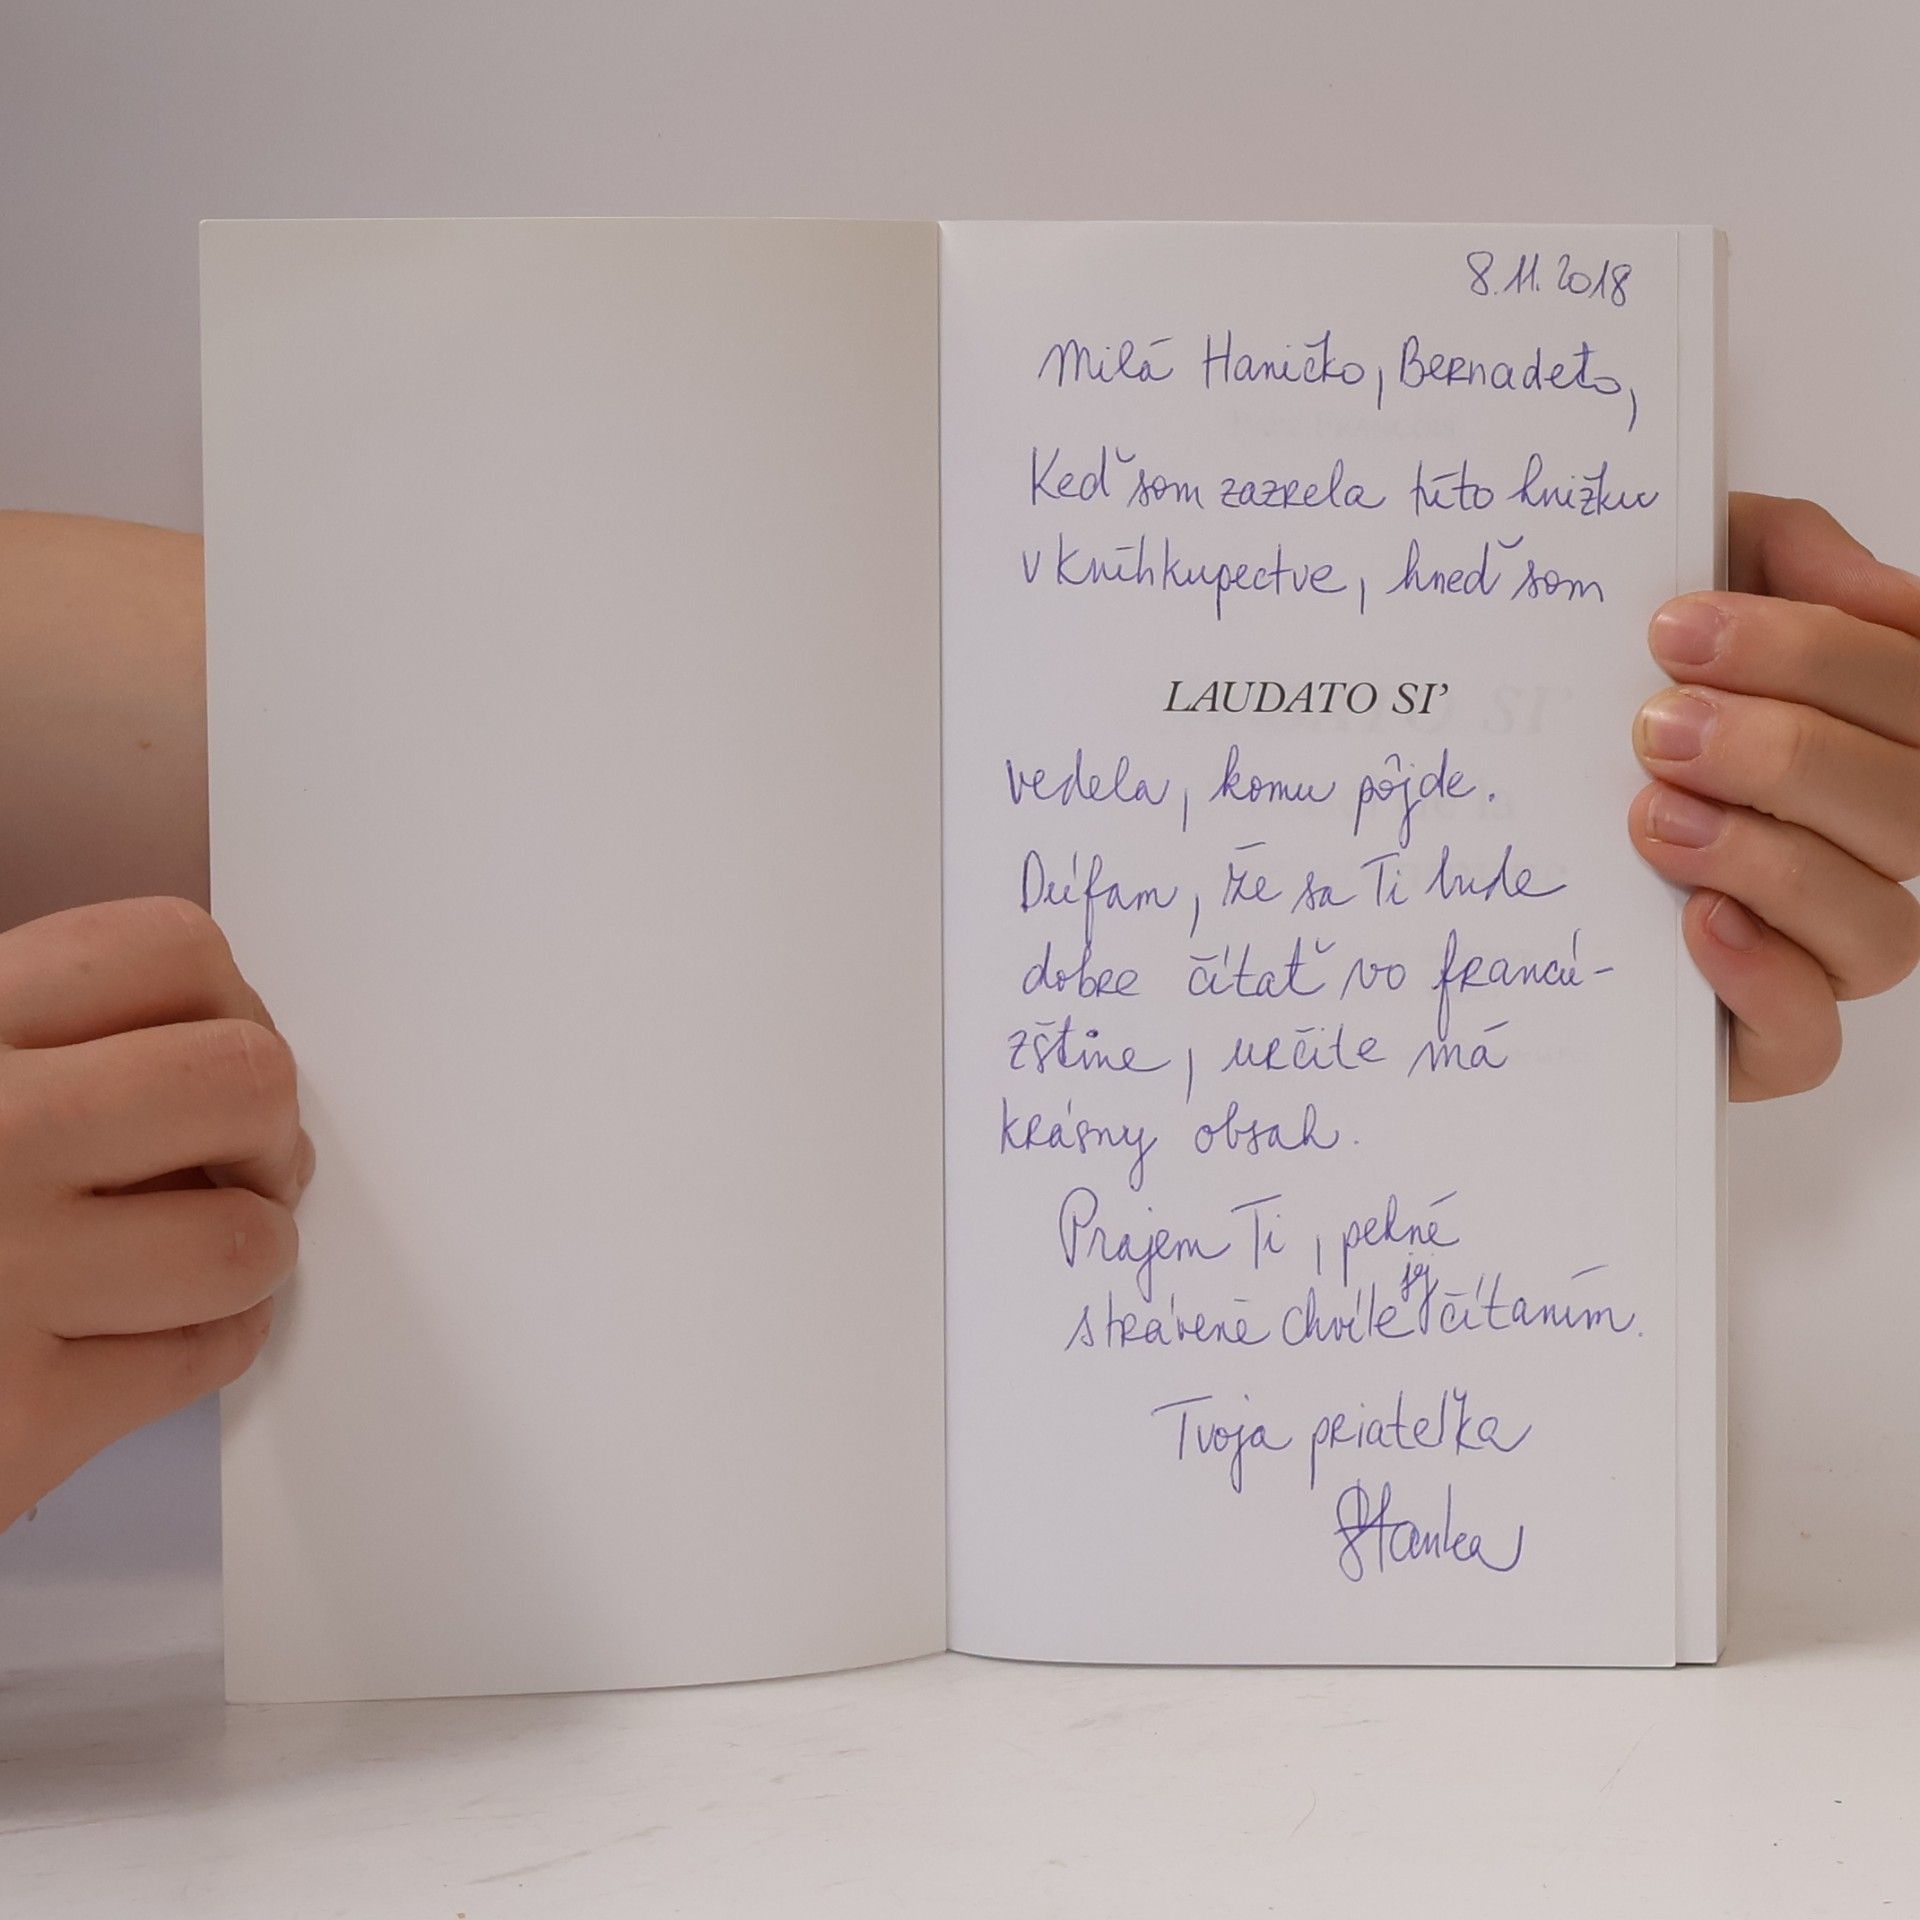 8.11.2018
Milá Haničko, Bernadeto,
Keď som zazrela túto knižku
v kníhkupectve, hneď som
LAUDATO SI'
vedela, komu pôjde.
Dúfam, že sa Ti bude
dobre čítať vo francú-
zštine, určite má
krásny obsah.
Prajem Ti, pekné
strávené chvíle jej čítaním.
Tvoja priateľka
Stanka